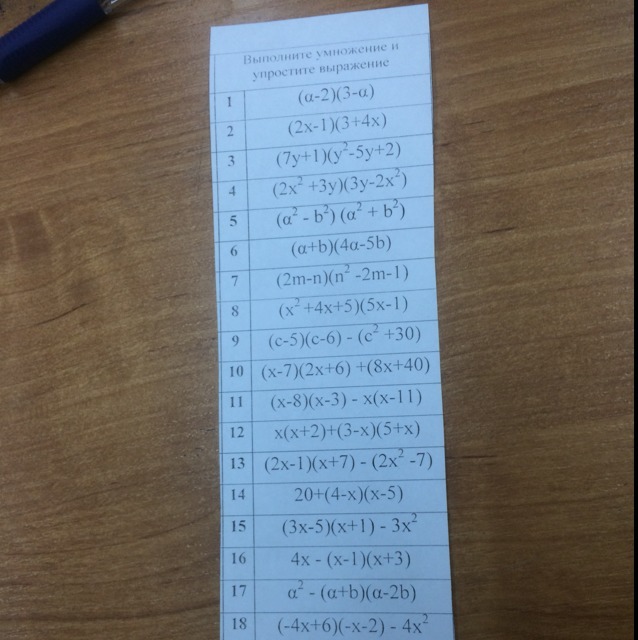 Выполните умножение и
упростите выражение
1 (α-2)(3-α)
2 (2x-1)(3+4x)
3 (7y+1)(y²-5y+2)
4 (2x² +3y)(3y-2x²)
5 (α² - b²) (α² + b²)
6 (α+b)(4α-5b)
7 (2m-n)(n² -2m-1)
8 (x² +4x+5)(5x-1)
9 (c-5)(c-6) - (c² +30)
10 (x-7)(2x+6) +(8x+40)
11 (x-8)(x-3) - x(x-11)
12 x(x+2)+(3-x)(5+x)
13 (2x-1)(x+7) - (2x² -7)
14 20+(4-x)(x-5)
15 (3x-5)(x+1) - 3x²
16 4x - (x-1)(x+3)
17 α² - (α+b)(α-2b)
18 (-4x+6)(-x-2) - 4x²